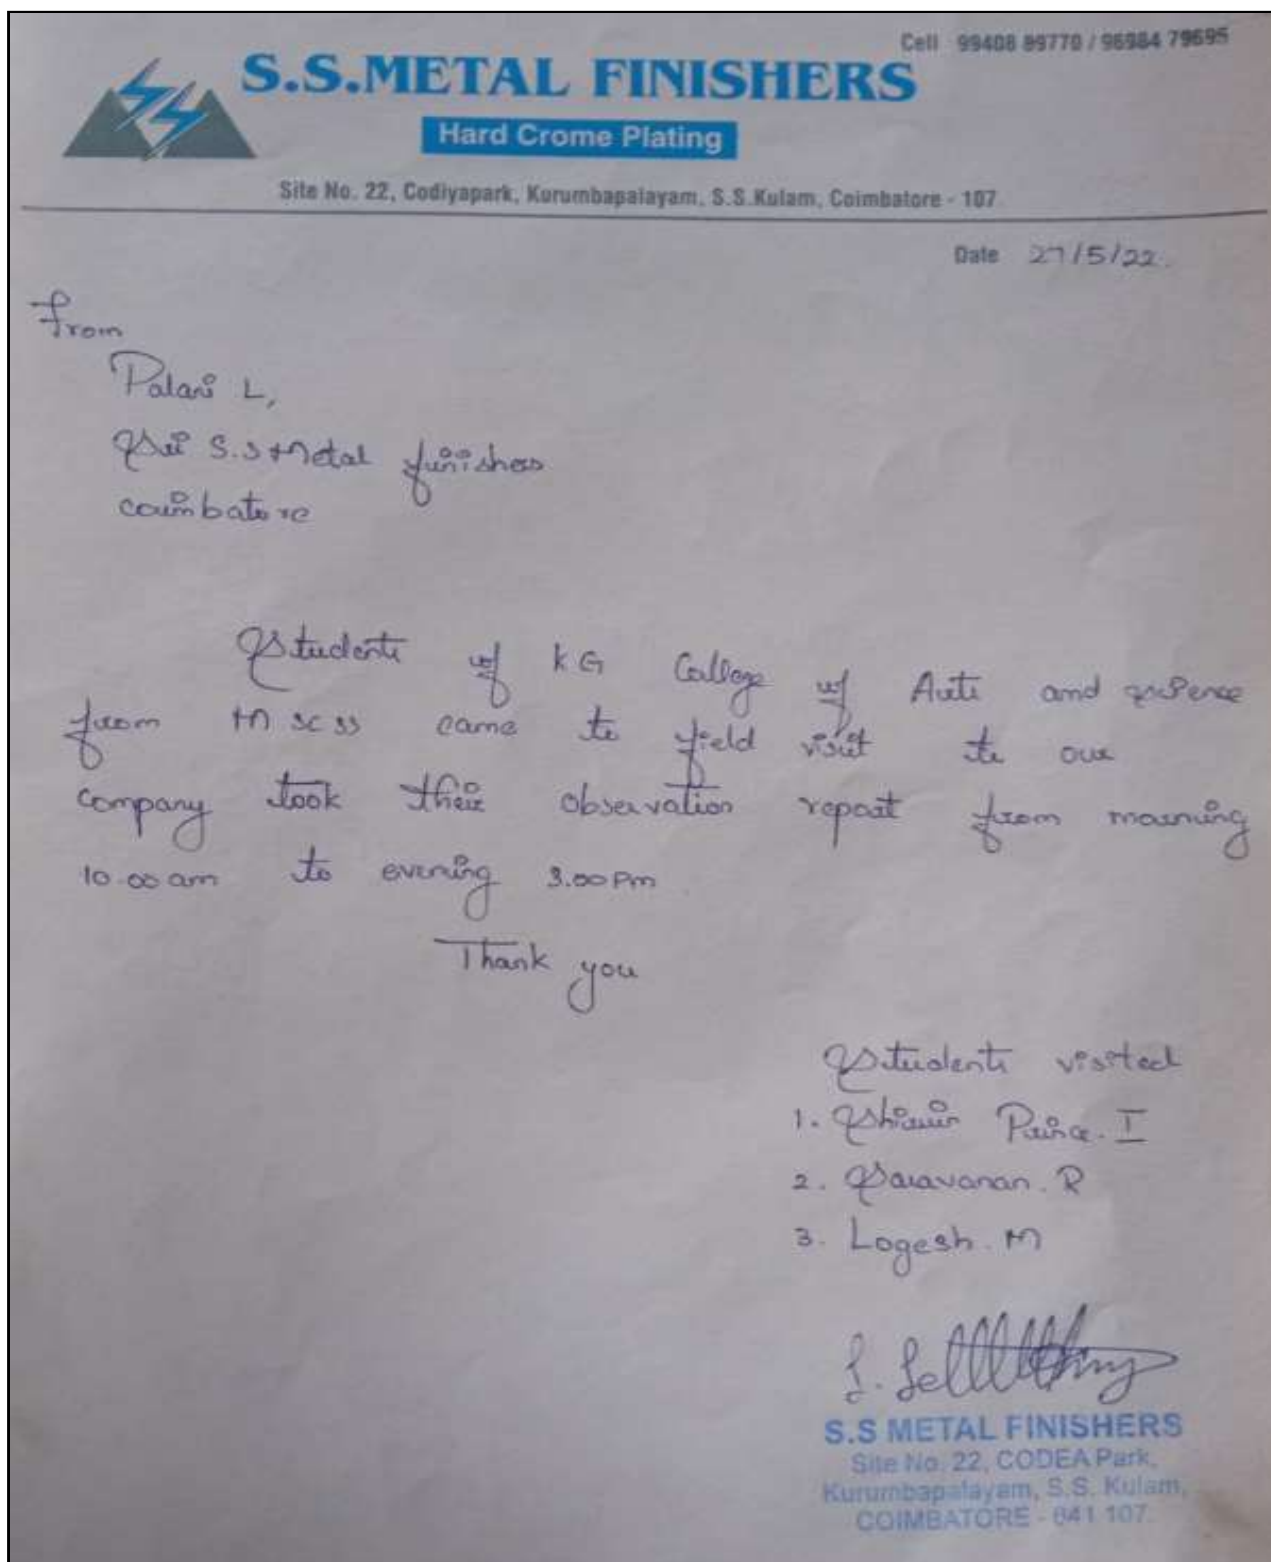 Cell 99408 89770 / 96984 79695
S.S.METAL FINISHERS
Hard Crome Plating
Site No. 22, Codiyapark, Kurumbapalayam, S.S.Kulam, Coimbatore - 107
Date 27/5/22.
From
Palani L,
Sri S.S Metal finishers
coimbatore
Students of KG College of Arts and science
from M sc ss came to field visit to our
company took their observation report from morning
10.00 am to evening 3.00 Pm
Thank you
Students visited
1. Prince. I
2. Saravanan. R
3. Logesh. M
S.S METAL FINISHERS
Site No. 22, CODEA Park,
Kurumbapalayam, S.S. Kulam,
COIMBATORE - 641 107.